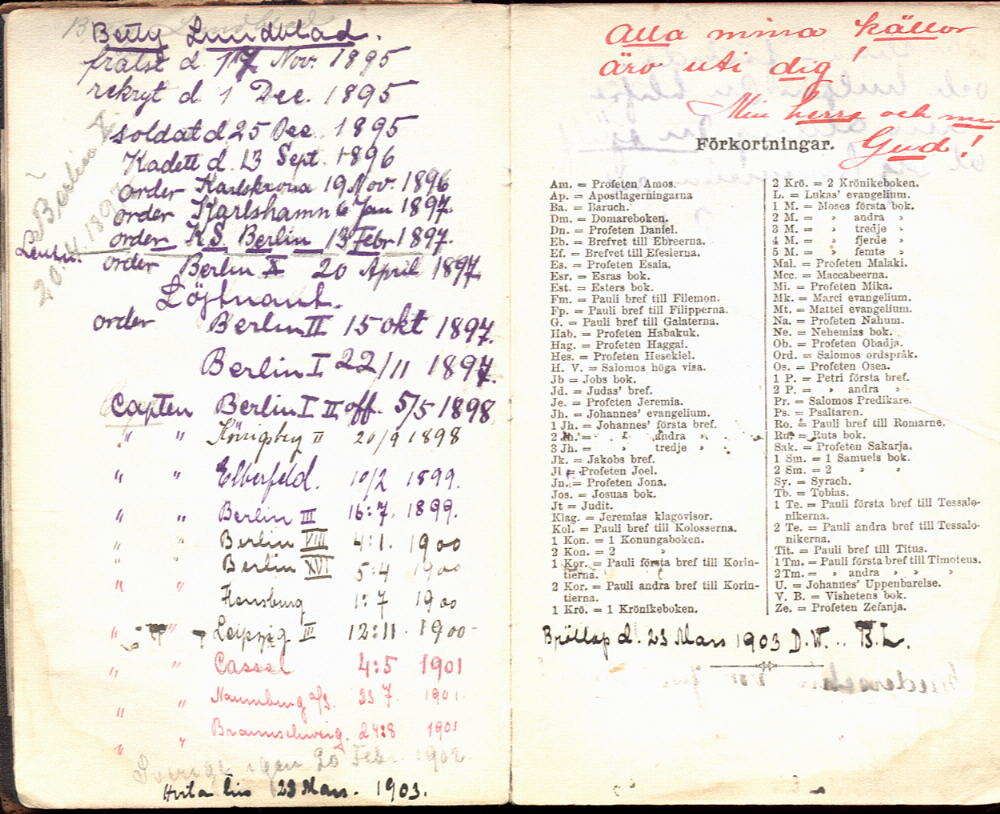 Betty Lundblad.
frälst d. 17 Nov. 1895
rekryt d. 1 Dec. 1895
soldat d. 25 Dec. 1895
Kadett d. 13 Sept. 1896
order Karlskrona 19 Nov. 1896
order Karlshamn 6 Jan 1897.
order K.S. Berlin 13 Febr 1897.
Leutn.
order Berlin X 20 April 1897
Löjtnant.
order Berlin II 15 okt 1897.
Berlin I 22/11 1897.
Capten Berlin I II off. 5/5 1898
" " Königsbg II 20/9 1898
" " Elberfeld. 10/2 1899.
" " Berlin III 16:7. 1899.
" " Berlin VIII 4:1. 1900
" " Berlin XVI 5:4 1900
" " Flensburg 1:7 1900
" " Leipzig III 12:11. 1900-
" " Cassel 4:5 1901
" " Naumburg a/S. 23 7. 1901.
" " Braunschweig. 24:8 1901
" " Sverige igen 20 Febr. 1902.
Hvila hus 23 Mars. 1903.
Berlin X
20.4.1897
Alla mina källor
äro uti dig!
Min herre och min
Gud!
Förkortningar.
Am. = Profeten Amos.
Ap. = Apostlagerningarna
Ba. = Baruch.
Dm. = Domareboken.
Dn. = Profeten Daniel.
Eb. = Brefvet till Ebreerna.
Ef. = Brefvet till Efesierna.
Es. = Profeten Esaia.
Esr. = Esras bok.
Est. = Esters bok.
Fm. = Pauli bref till Filemon.
Fp. = Pauli bref till Filipperna.
G. = Pauli bref till Galaterna.
Hab. = Profeten Habakuk.
Hag. = Profeten Haggai.
Hes. = Profeten Hesekiel.
H. V. = Salomos höga visa.
Jb = Jobs bok.
Jd. = Judas' bref.
Je. = Profeten Jeremia.
Jh. = Johannes' evangelium.
1 Jh. = Johannes' första bref.
2 Jh. = » andra »
3 Jh. = » tredje »
Jk. = Jakobs bref.
Jl = Profeten Joel.
Jn. = Profeten Jona.
Jos. = Josuas bok.
Jt = Judit.
Klag. = Jeremias klagovisor.
Kol. = Pauli bref till Kolosserna.
1 Kon. = 1 Konungaboken.
2 Kon. = 2 »
1 Kor. = Pauli första bref till Korin-
tierna.
2 Kor. = Pauli andra bref till Korin-
tierna.
1 Krö. = 1 Krönikeboken.
2 Krö. = 2 Krönikeboken.
L. = Lukas' evangelium.
1 M. = Moses första bok.
2 M. = » andra »
3 M. = » tredje »
4 M. = » fjerde »
5 M. = » femte »
Mal. = Profeten Malaki.
Mcc. = Maccabeerna.
Mi. = Profeten Mika.
Mk. = Marci evangelium.
Mt. = Mattei evangelium.
Na. = Profeten Nahum.
Ne. = Nehemias bok.
Ob. = Profeten Obadja.
Ord. = Salomos ordspråk.
Os. = Profeten Osea.
1 P. = Petri första bref.
2 P. = » andra »
Pr. = Salomos Predikare.
Ps. = Psaltaren.
Ro. = Pauli bref till Romarne.
Ru. = Ruts bok.
Sak. = Profeten Sakarja.
1 Sm. = 1 Samuels bok.
2 Sm. = 2 » »
Sy. = Syrach.
Tb. = Tobias.
1 Te. = Pauli första bref till Tessalo-
nikerna.
2 Te. = Pauli andra bref till Tessalo-
nikerna.
Tit. = Pauli bref till Titus.
1 Tm. = Pauli första bref till Timoteus.
2 Tm. = » andra » » »
U. = Johannes' Uppenbarelse.
V. B. = Vishetens bok.
Ze. = Profeten Zefanja.
Bröllop d. 23 Mars 1903 D.W... B.L.